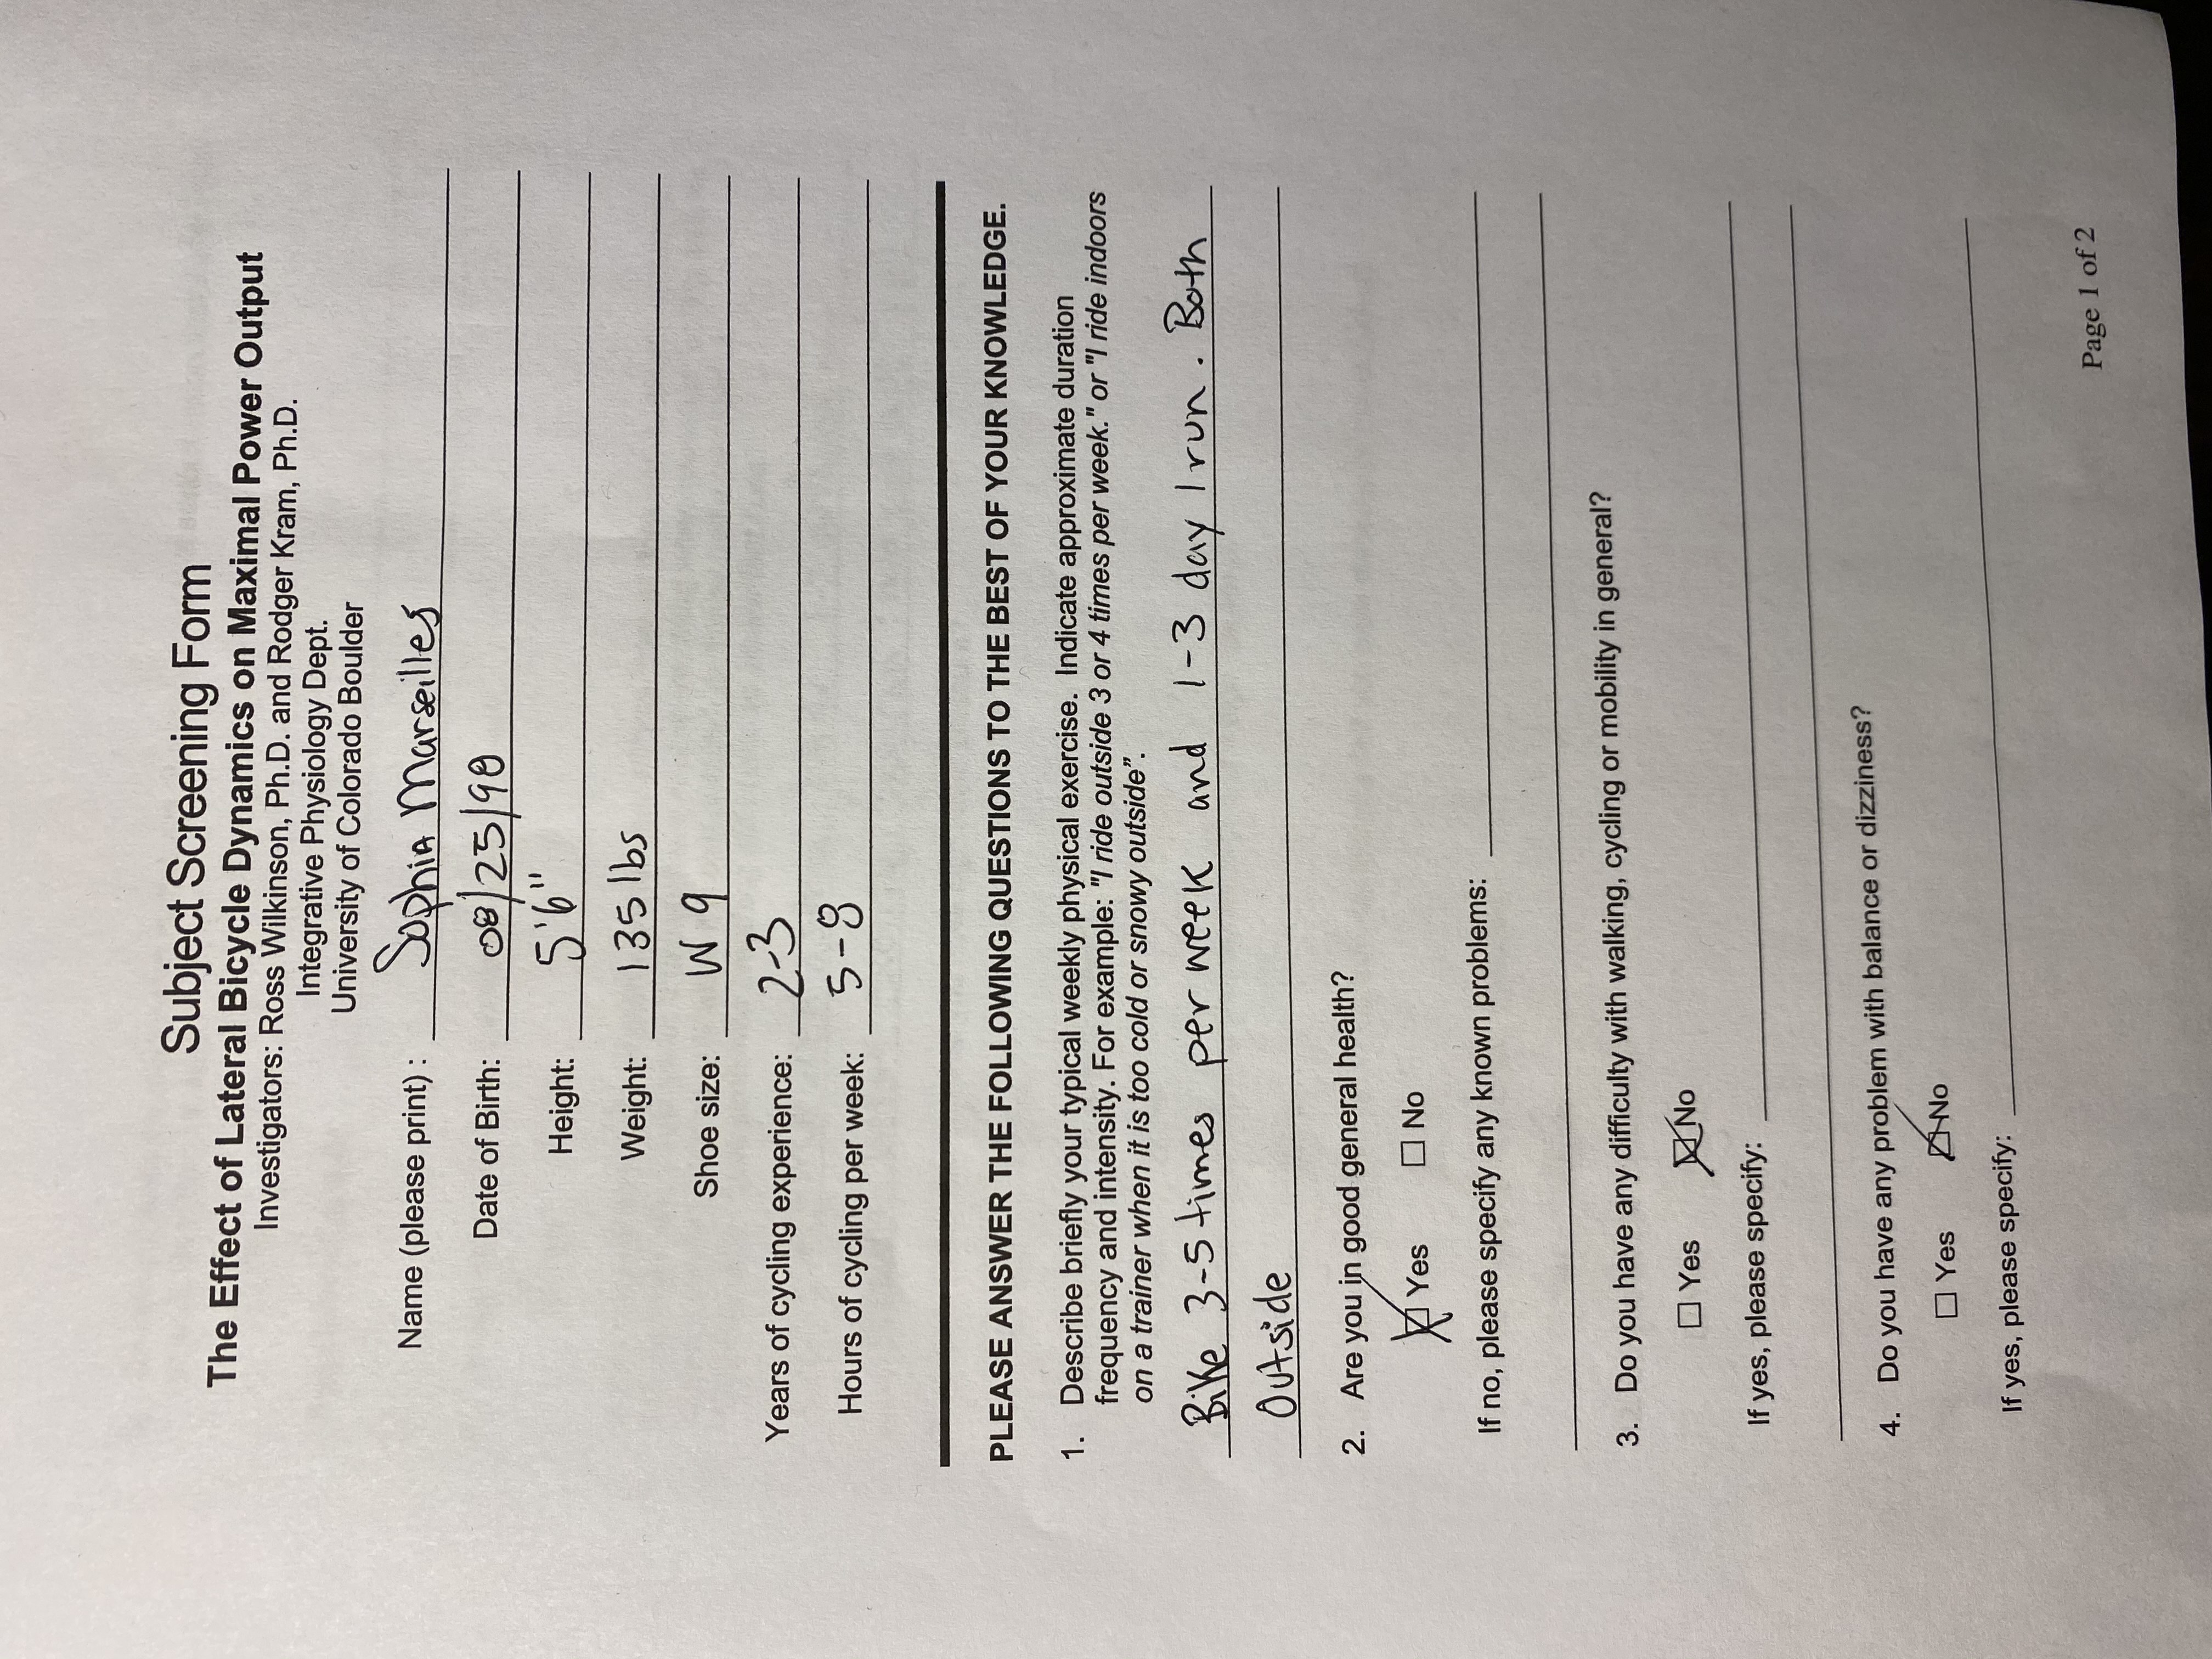 Subject Screening Form
The Effect of Lateral Bicycle Dynamics on Maximal Power Output
Investigators: Ross Wilkinson, Ph.D. and Rodger Kram, Ph.D.
Integrative Physiology Dept.
University of Colorado Boulder
Name (please print) : Sophia Marseilles
Date of Birth: 08/25/98
Height: 5'6"
Weight: 135 lbs
Shoe size: W 9
Years of cycling experience: 2-3
Hours of cycling per week: 5-8
PLEASE ANSWER THE FOLLOWING QUESTIONS TO THE BEST OF YOUR KNOWLEDGE.
1. Describe briefly your typical weekly physical exercise. Indicate approximate duration
frequency and intensity. For example: "I ride outside 3 or 4 times per week." or "I ride indoors
on a trainer when it is too cold or snowy outside”.
Bike 3-5 times per week and 1-3 day I run. Both
Outside
2. Are you in good general health?
☒ Yes ☐ No
If no, please specify any known problems:
3. Do you have any difficulty with walking, cycling or mobility in general?
☐ Yes ☒ No
If yes, please specify:
4. Do you have any problem with balance or dizziness?
☐ Yes ☒ No
If yes, please specify:
Page 1 of 2